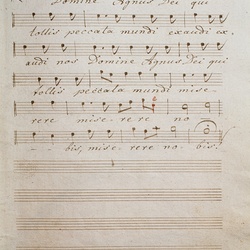 Domine Agnus Dei qui
tollis peccata mundi exaudi ex,
audi nos Domine Agnus Dei qui
tollis peccata mundi mise-
rere mise-rere no
-bis, mise-rere no-bis.